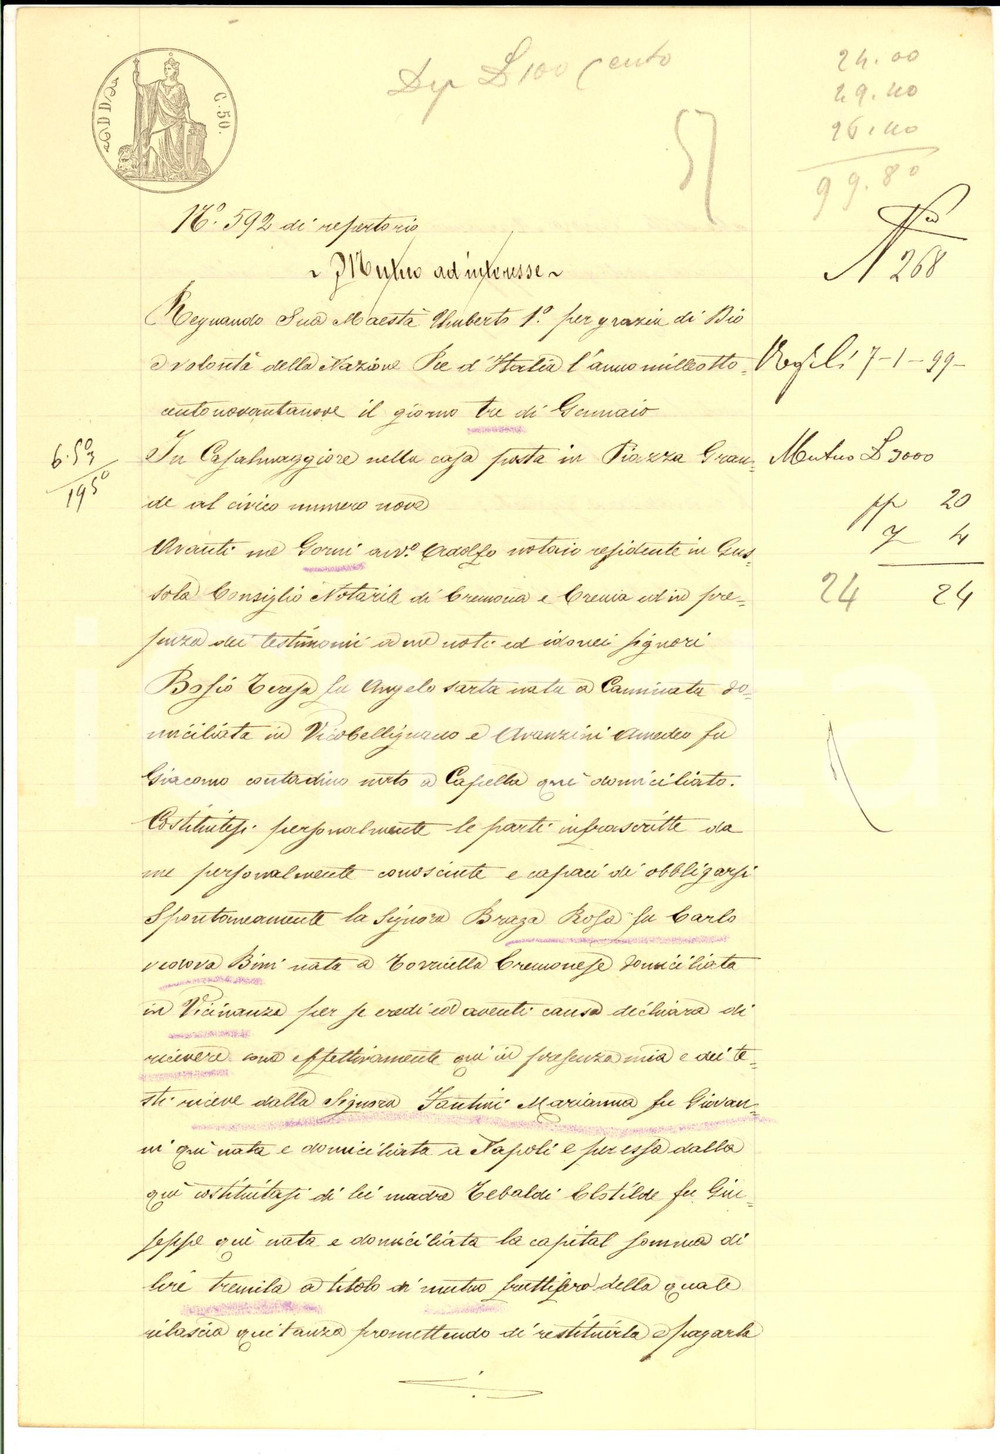 ADDA C. 50.
Dep L 100 Cento
24.00
29.40
26.40
99.80
N.° 592 di repertorio
N.ro 268
~ Mutuo ad interesse ~
Regnando Sua Maestà Umberto 1.° per grazia di Dio
e volontà della Nazione Re d'Italia l'anno milleotto-
centonovantanove il giorno tre di Gennaio
Regli 7-1-99-
In Casalmaggiore nella casa posta in Piazza Gran-
de al civico numero nove
6.50
195°
Mutuo L 3000
pp 20
7 4
24 24
Avanti me Gorni avv.° Adolfo notaio residente in Gus-
sola Consiglio Notarile di Cremona e Crema ed in pre-
senza dei testimonii a me noti ed idonei signori
Bosio Teresa fu Angelo sarta nata a Camminata do-
miciliata in Vicobellignano e Avanzini Amedeo fu
Giacomo contadino nato a Capella quì domiciliato.
Costituitesi personalmente le parti infrascritte da
me personalmente conosciute e capaci di obbligarsi
Spontaneamente la Signora Braga Rosa fu Carlo
vedova Bini nata a Torricella Cremonese domiciliata
in Vicinanza per se eredi ed aventi causa dichiara di
ricevere come effettivamente quì in presenza mia e dei te-
sti riceve dalla Signora Fantini Marianna fu Giovan-
ni quì nata e domiciliata a Napoli e per essa dalla
quì costituitasi di lei madre Tebaldi Clotilde fu Giu-
seppe quì nata e domiciliata la capital somma di
lire tremila a titolo di mutuo fruttifero della quale
rilascia quitanza promettendo di restituirla e pagarla